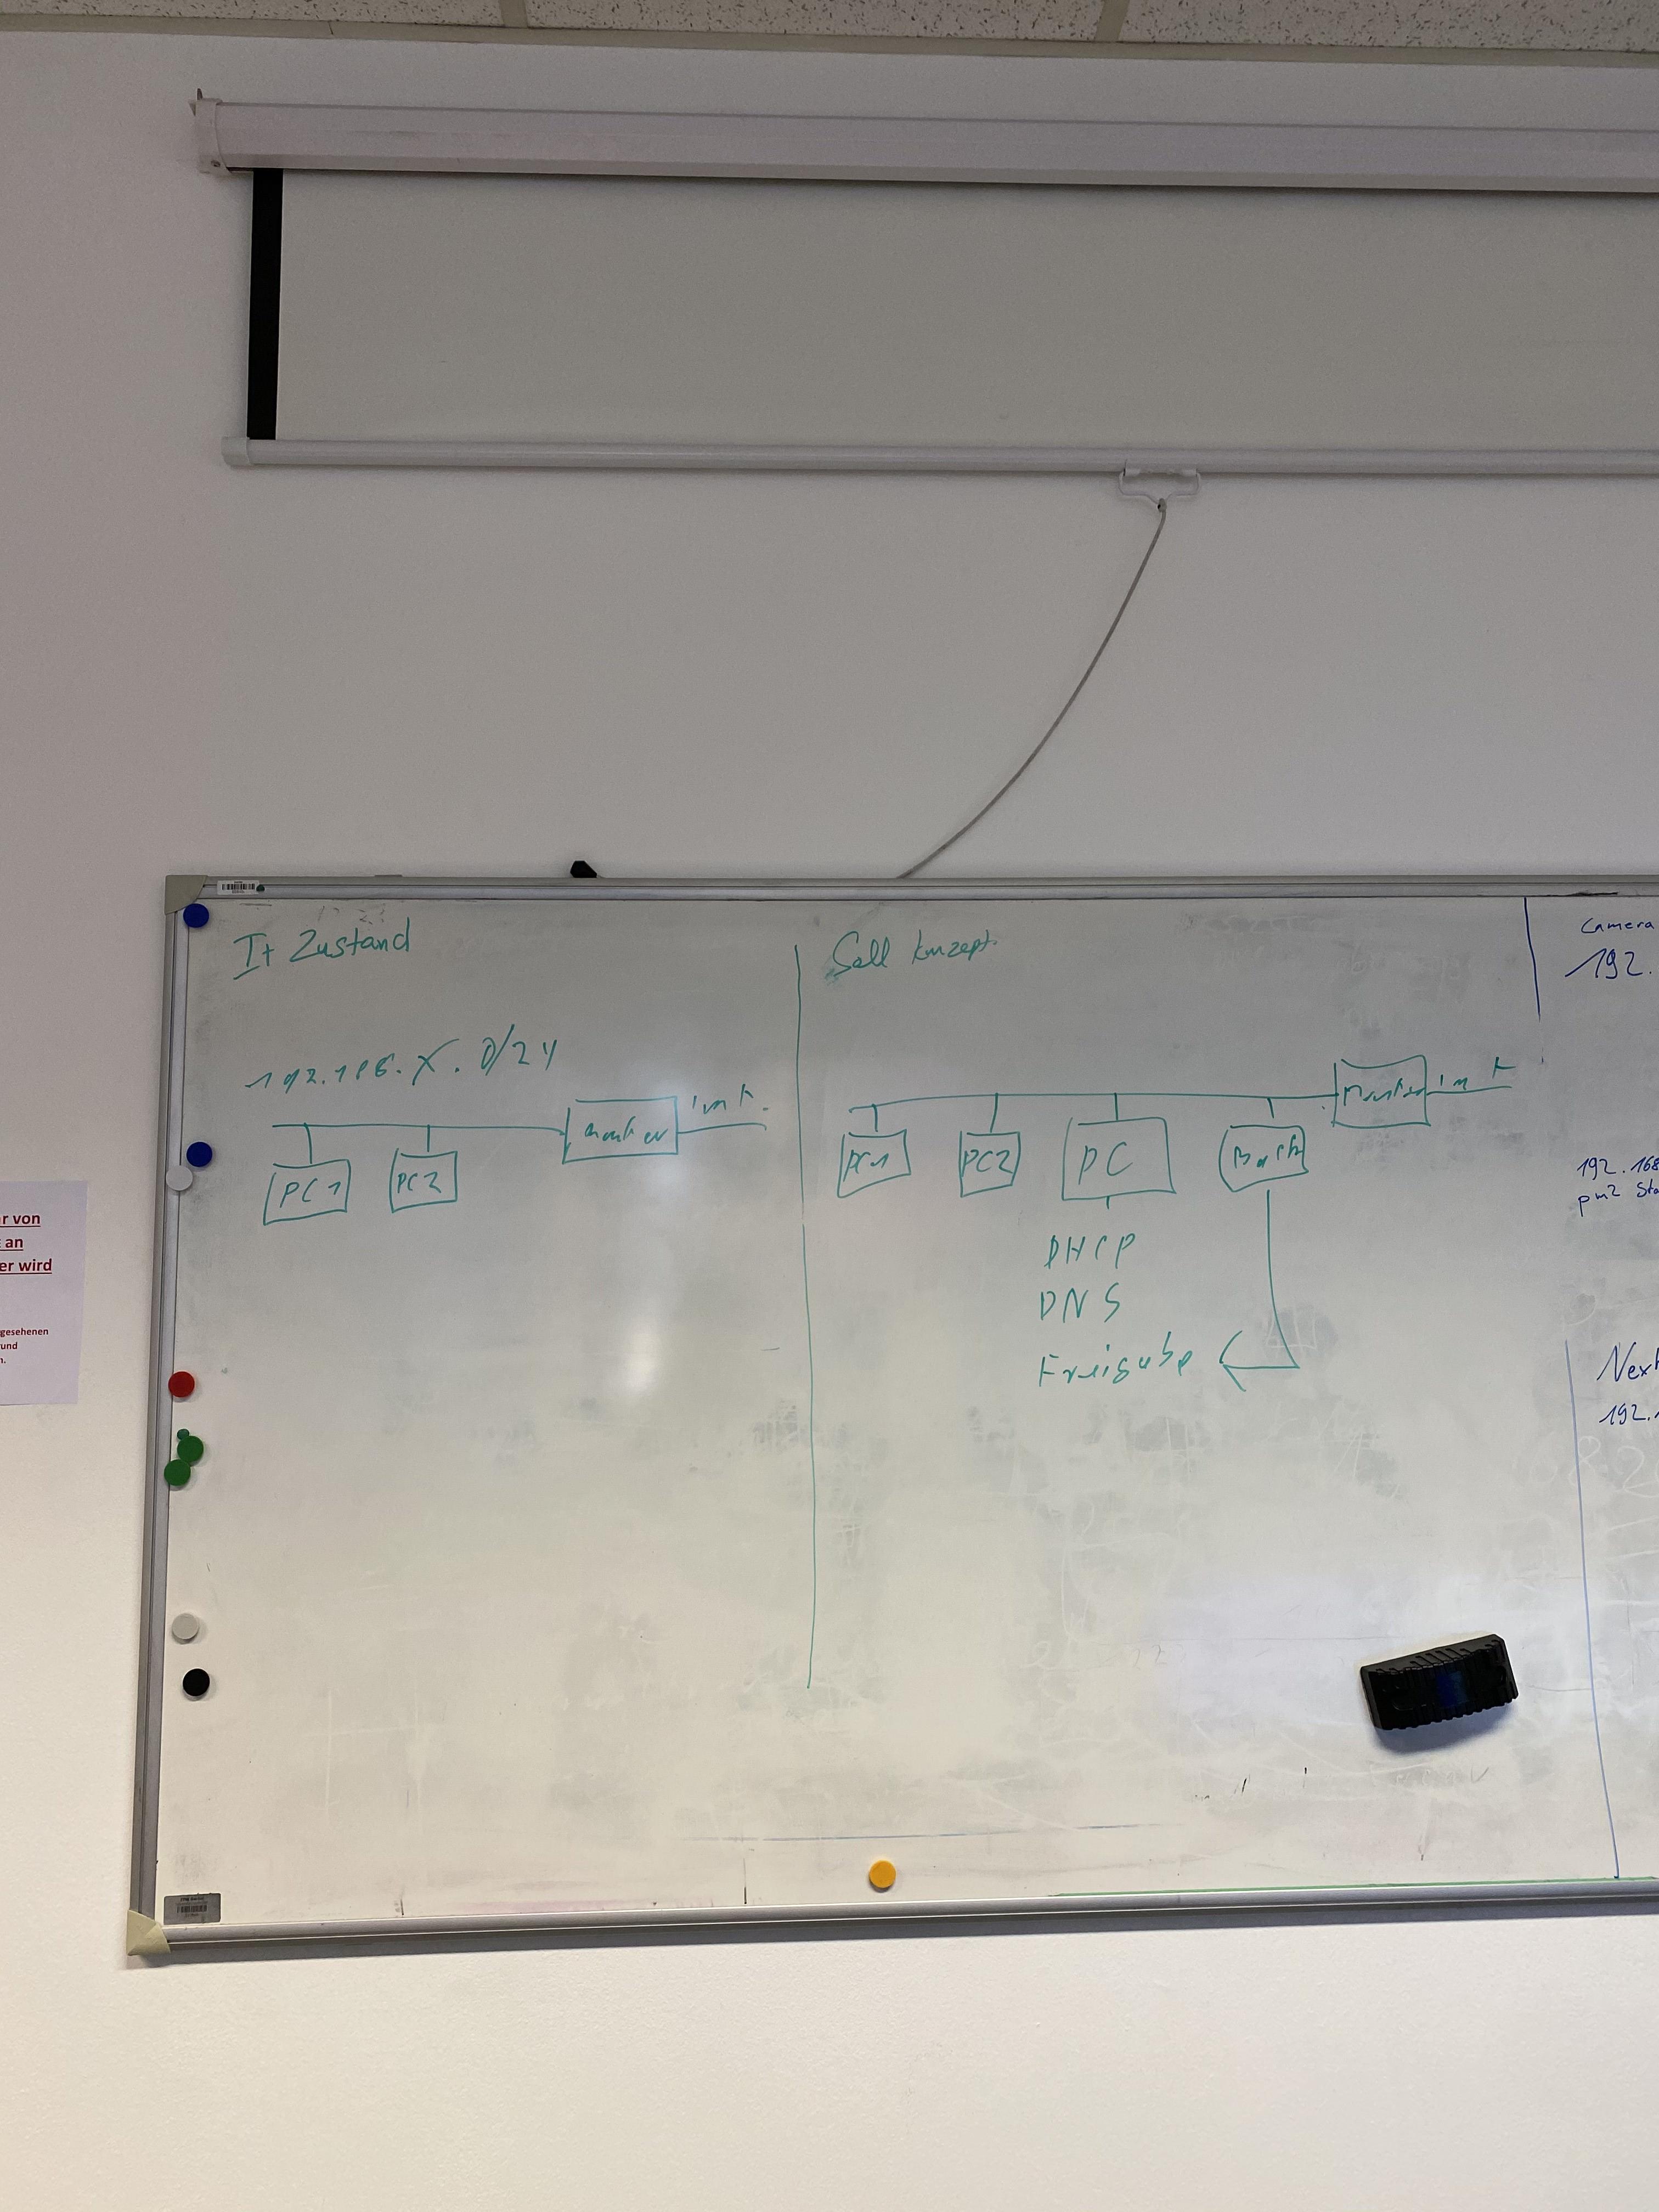 It Zustand
192.198.X.0/24
PC1
PC2
Router
int.
Soll Konzept
PC1
PC2
PC
Router
int
DHCP
DNS
Freigabe
Camera
192.
192.168
pm2 Sta
Next
192.1
r von
an
er wird
gesehenen
und
n.